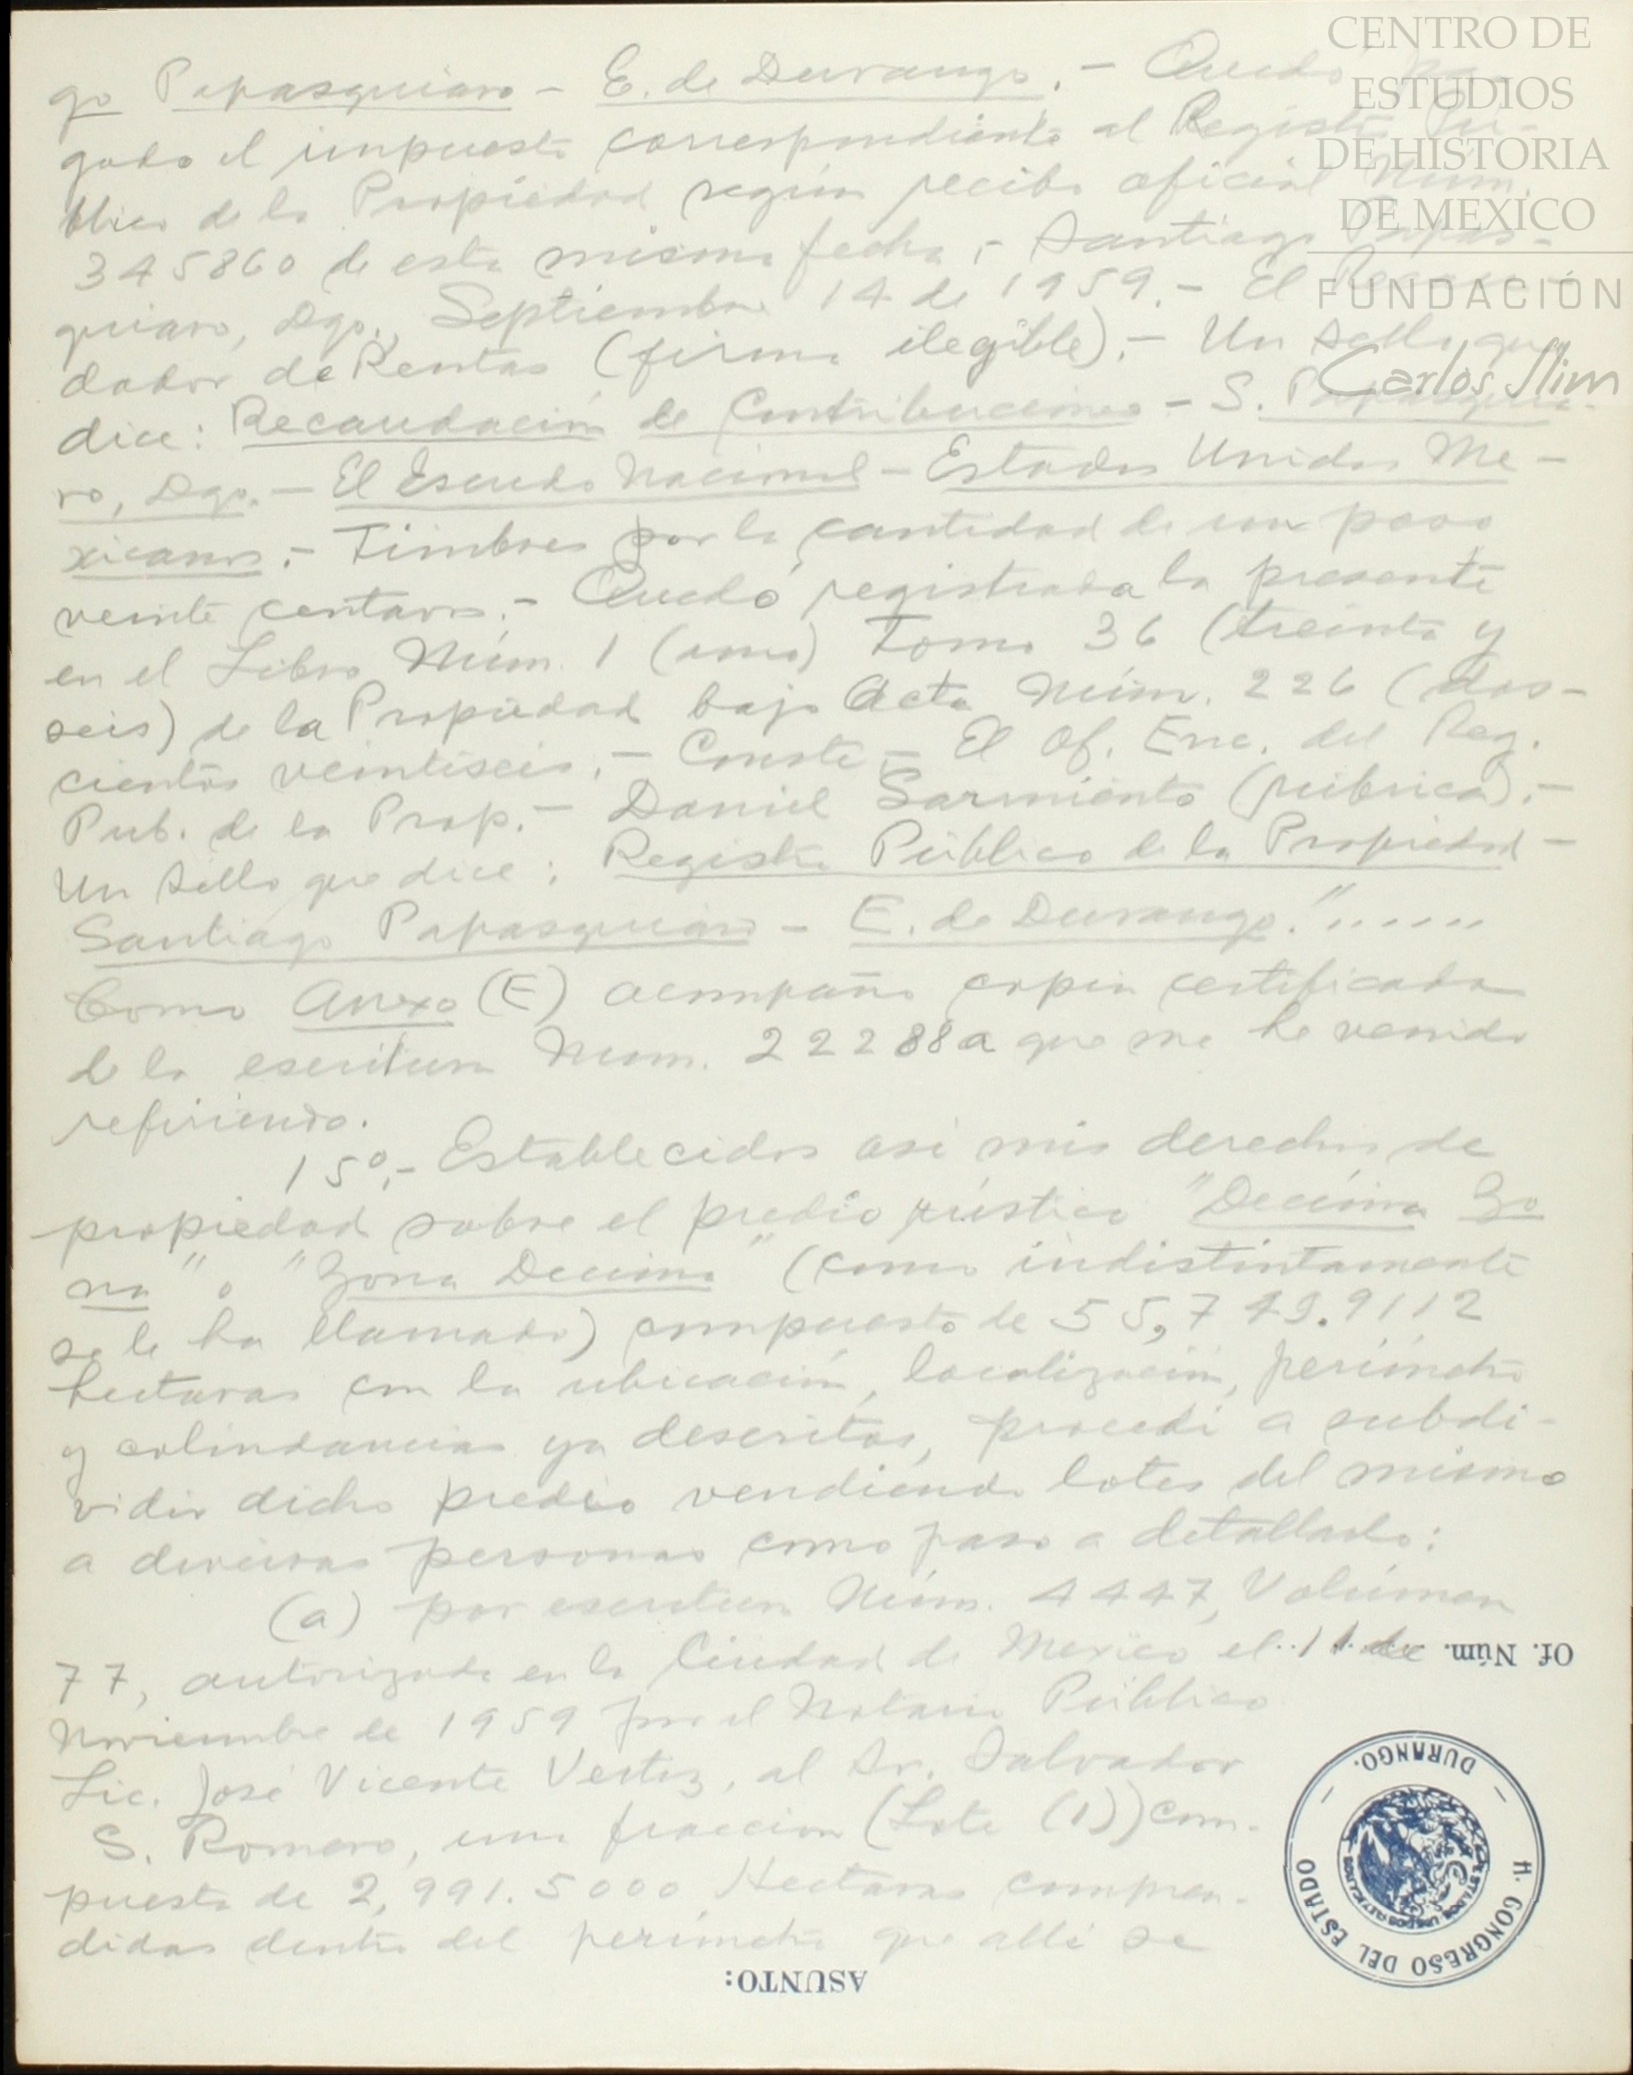 CENTRO DE
ESTUDIOS
DE HISTORIA
DE MEXICO
FUNDACIÓN
Carlos Slim
go Papasquiaro - E. de Durango. - Quedó pa-
gado el impuesto correspondiente al Registro Pú-
blico de la Propiedad según recibo oficial Núm.
345860 de esta misma fecha, - Santiago Papas-
quiaro, Dgo., Septiembre 14 de 1959. - El Recau-
dador de Rentas (firma ilegible). - Un sello que
dice: Recaudación de Contribuciones - S. Papasquia-
ro, Dgo. - El Escudo Nacional - Estados Unidos Me-
xicanos. - Timbres por la cantidad de un peso
veinte centavos. - Quedó registrada la presente
en el Libro Núm. 1 (uno) Tomo 36 (treinta y
seis) de la Propiedad bajo Acta Núm. 226 (dos-
cientos veintiseis. - Conste - El Of. Enc. del Reg.
Pub. de la Prop. - Daniel Sarmiento (rúbrica). -
Un sello que dice: Registro Público de la Propiedad -
Santiago Papasquiaro - E. de Durango."......
Como Anexo (E) acompaño copia certificada
de la escritura Num. 22288a que me he venido
refiriendo.
15º.- Establecidos asi mis derechos de
propiedad sobre el predio rústico "Decima Zo
na" o "Zona Decima" (como indistintamente
se le ha llamado) compuesto de 55,749.9112
hectaras con la ubicación, localización, perímetro
y colindancias ya descritas, procedi a subdi-
vidir dicho predio vendiendo lotes del mismo
a diversas personas como paso a detallarlo:
(a) por escritura Núm. 4447, Volúmen
77, autorizada en la Ciudad de Mexico el 11 de
Noviembre de 1959 por el Notario Público
Lic. José Vicente Vertiz, al Sr. Salvador
S. Romero, una fraccion (Lote (1)) com-
puesta de 2,991.5000 Hectaras compren-
didas dentro del perimetro que alli se
Of. Núm.
H. CONGRESO DEL ESTADO
DURANGO.
ESTADOS UNIDOS MEXICANOS
ASUNTO: